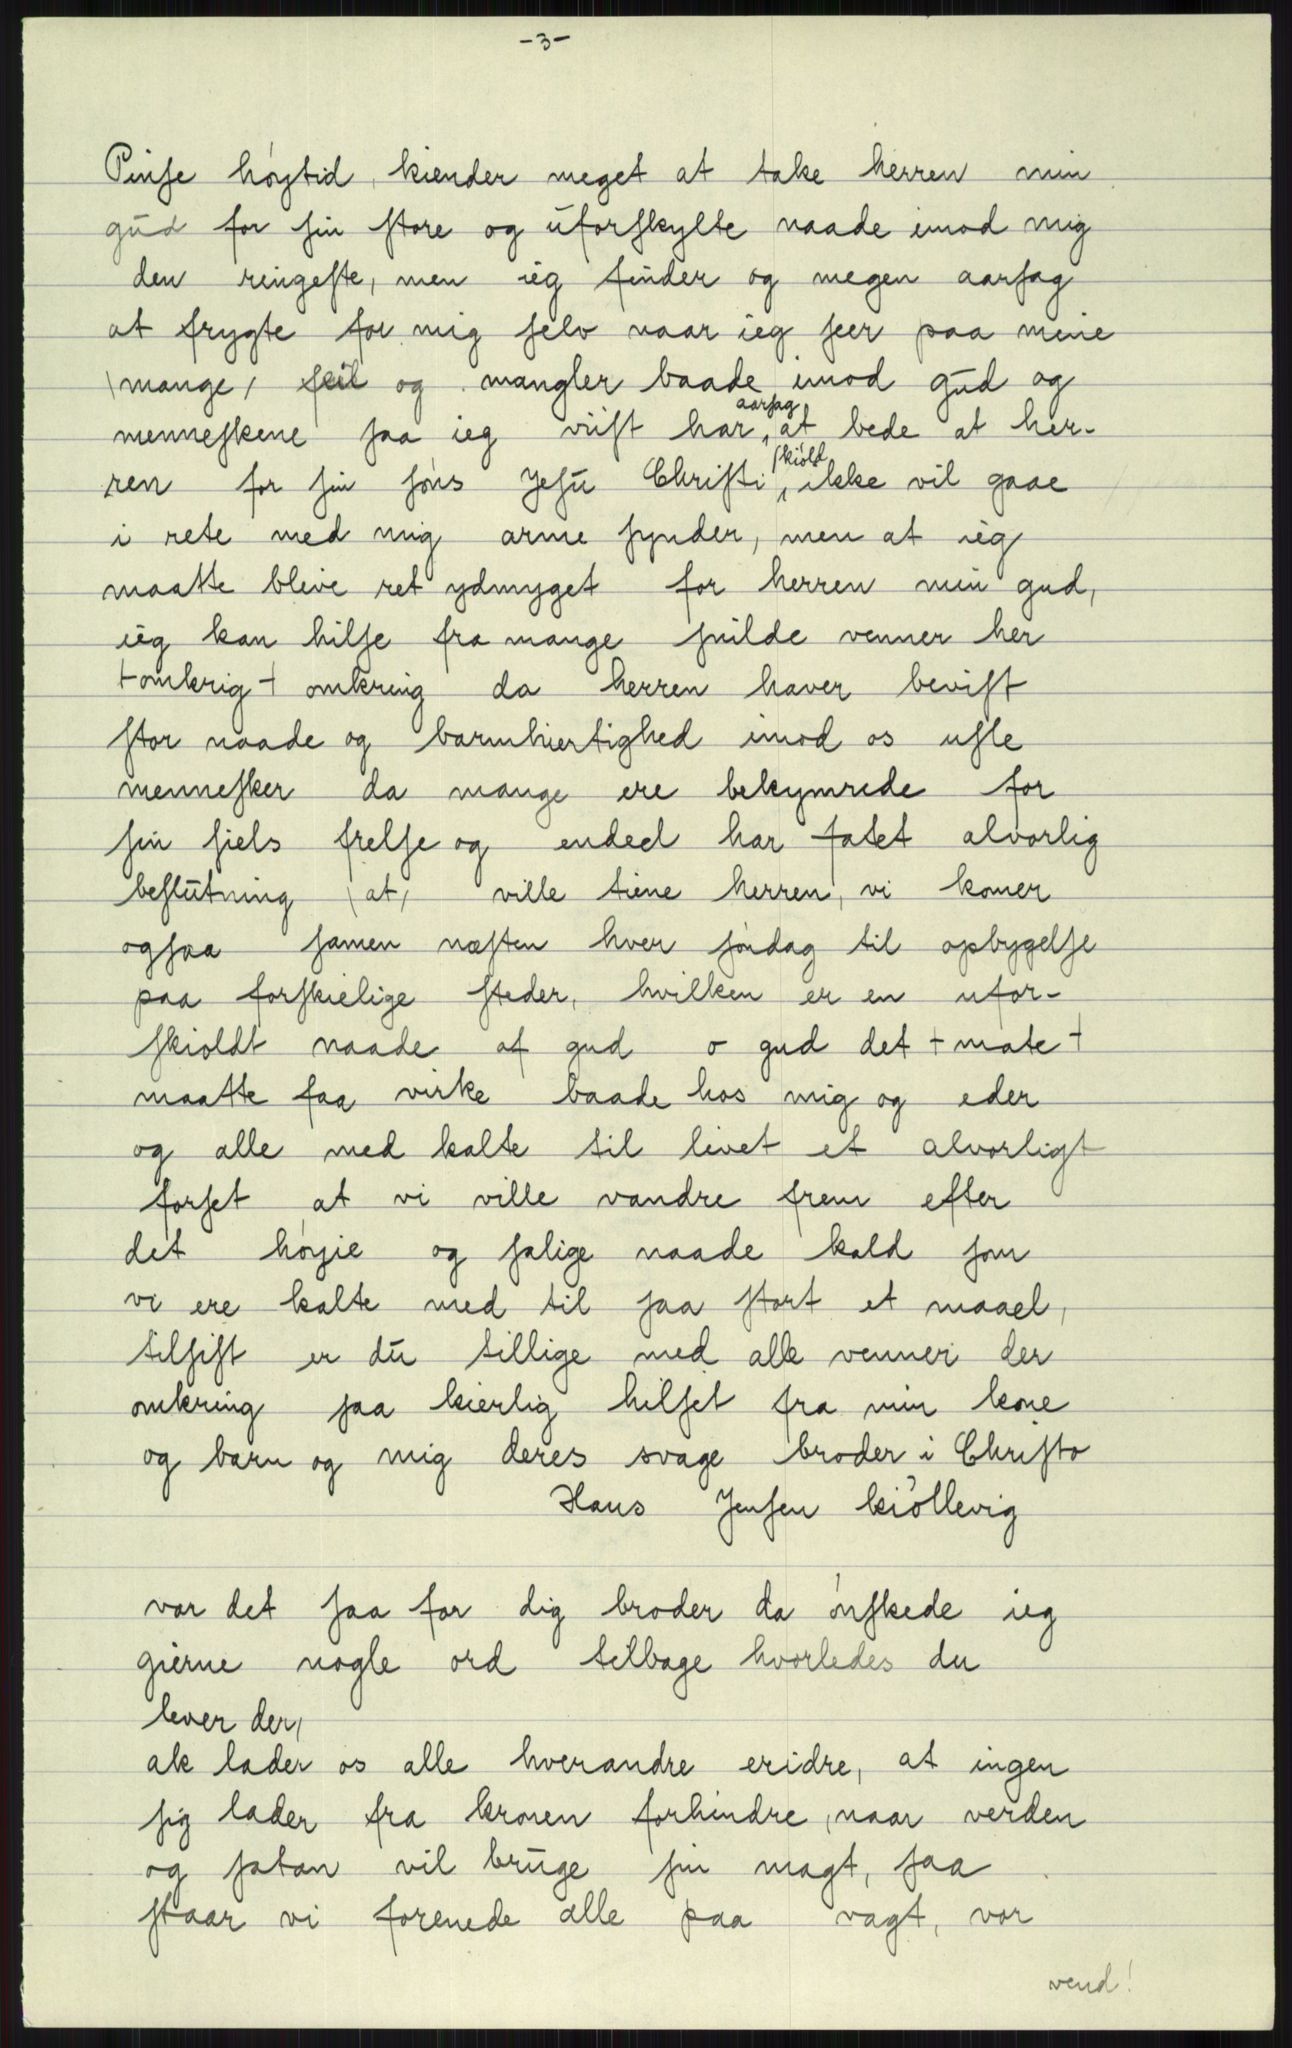 -3-
Pinse høytid, kiender meget at take herren min
gud for sin store og uforskylte naade imod mig
den ringeste, men ieg finder og megen aarsag
at frygte for mig selv naar ieg seer paa mine
\mange/ feil og mangler baade imod gud og
menneskene saa ieg viist har aarsag at bede at her-
ren for sin søns Jesu Christi skiöld ikke vil gaae
i rete med mig arme synder, men at ieg
maatte blive ret ydmyget for herren min gud,
ieg kan hilse fra mange snilde venner her
+omkrig+ omkring da herren haver bevist
stor naade og barmhiertighed imod os usle
mennesker da mange ere bekymrede for
sin siels frelse og endeel har fatet alvorlig
beslutning \at/ ville tiene herren, vi komer
ogsaa samen næsten hver søndag til opbygelse
paa forskielige steder, hvilken er en ufor-
skioldt naade af gud o gud det +mate+
maatte faa virke baade hos mig og eder
og alle med kalte til livet et alvorligt
forset at vi ville vandre frem efter
det høyie og salige naade kald som
vi ere kalte med til saa stort et maael,
tilsist er du tillige med alle venner der
omkring saa kierlig hilset fra min kone
og barn og mig deres svage broder i Christo
Hans Jensen kiöllevig
var det saa for dig broder da ønskede ieg
gierne nogle ord tilbage hvorledes du
lever der,
ak lader os alle hverandre eridre, at ingen
sig lader fra kronen forhindre, naar verden
og satan vil bruge sin magt, saa
staar vi forenede alle paa vagt, vor
vend!